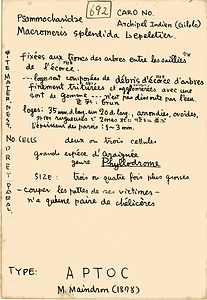 692
CARD NO.
Psammocharidae
Archipel Indien (Gilolo)
Macromeris splendida Lepeletier.
SITE MATER. NEST.
fixées aux troncs des arbres entre les saillies
de l'écorce.
...loges sont composées de débris d'écorce d'arbres
finement triturées et agglomérées avec une
sort de gomme - n'est pas dissoute par l'eau
brun
loges: 35 mm d. long sur 20 d. larg., arrondies, ovoïdes,
l'épaisseur de parois: 1-3 mm.
NO CELLS
deux ou trois cellules
PREY
grande espèce d'araignée
genre Phyllodrome
SIZE: trois ou quatre fois plus grosses
-couper les pattes de ses victimes-
n'a guère paire de chélicères
PARAL.
TYPE:
A PTOC
M. Maindron (1878)